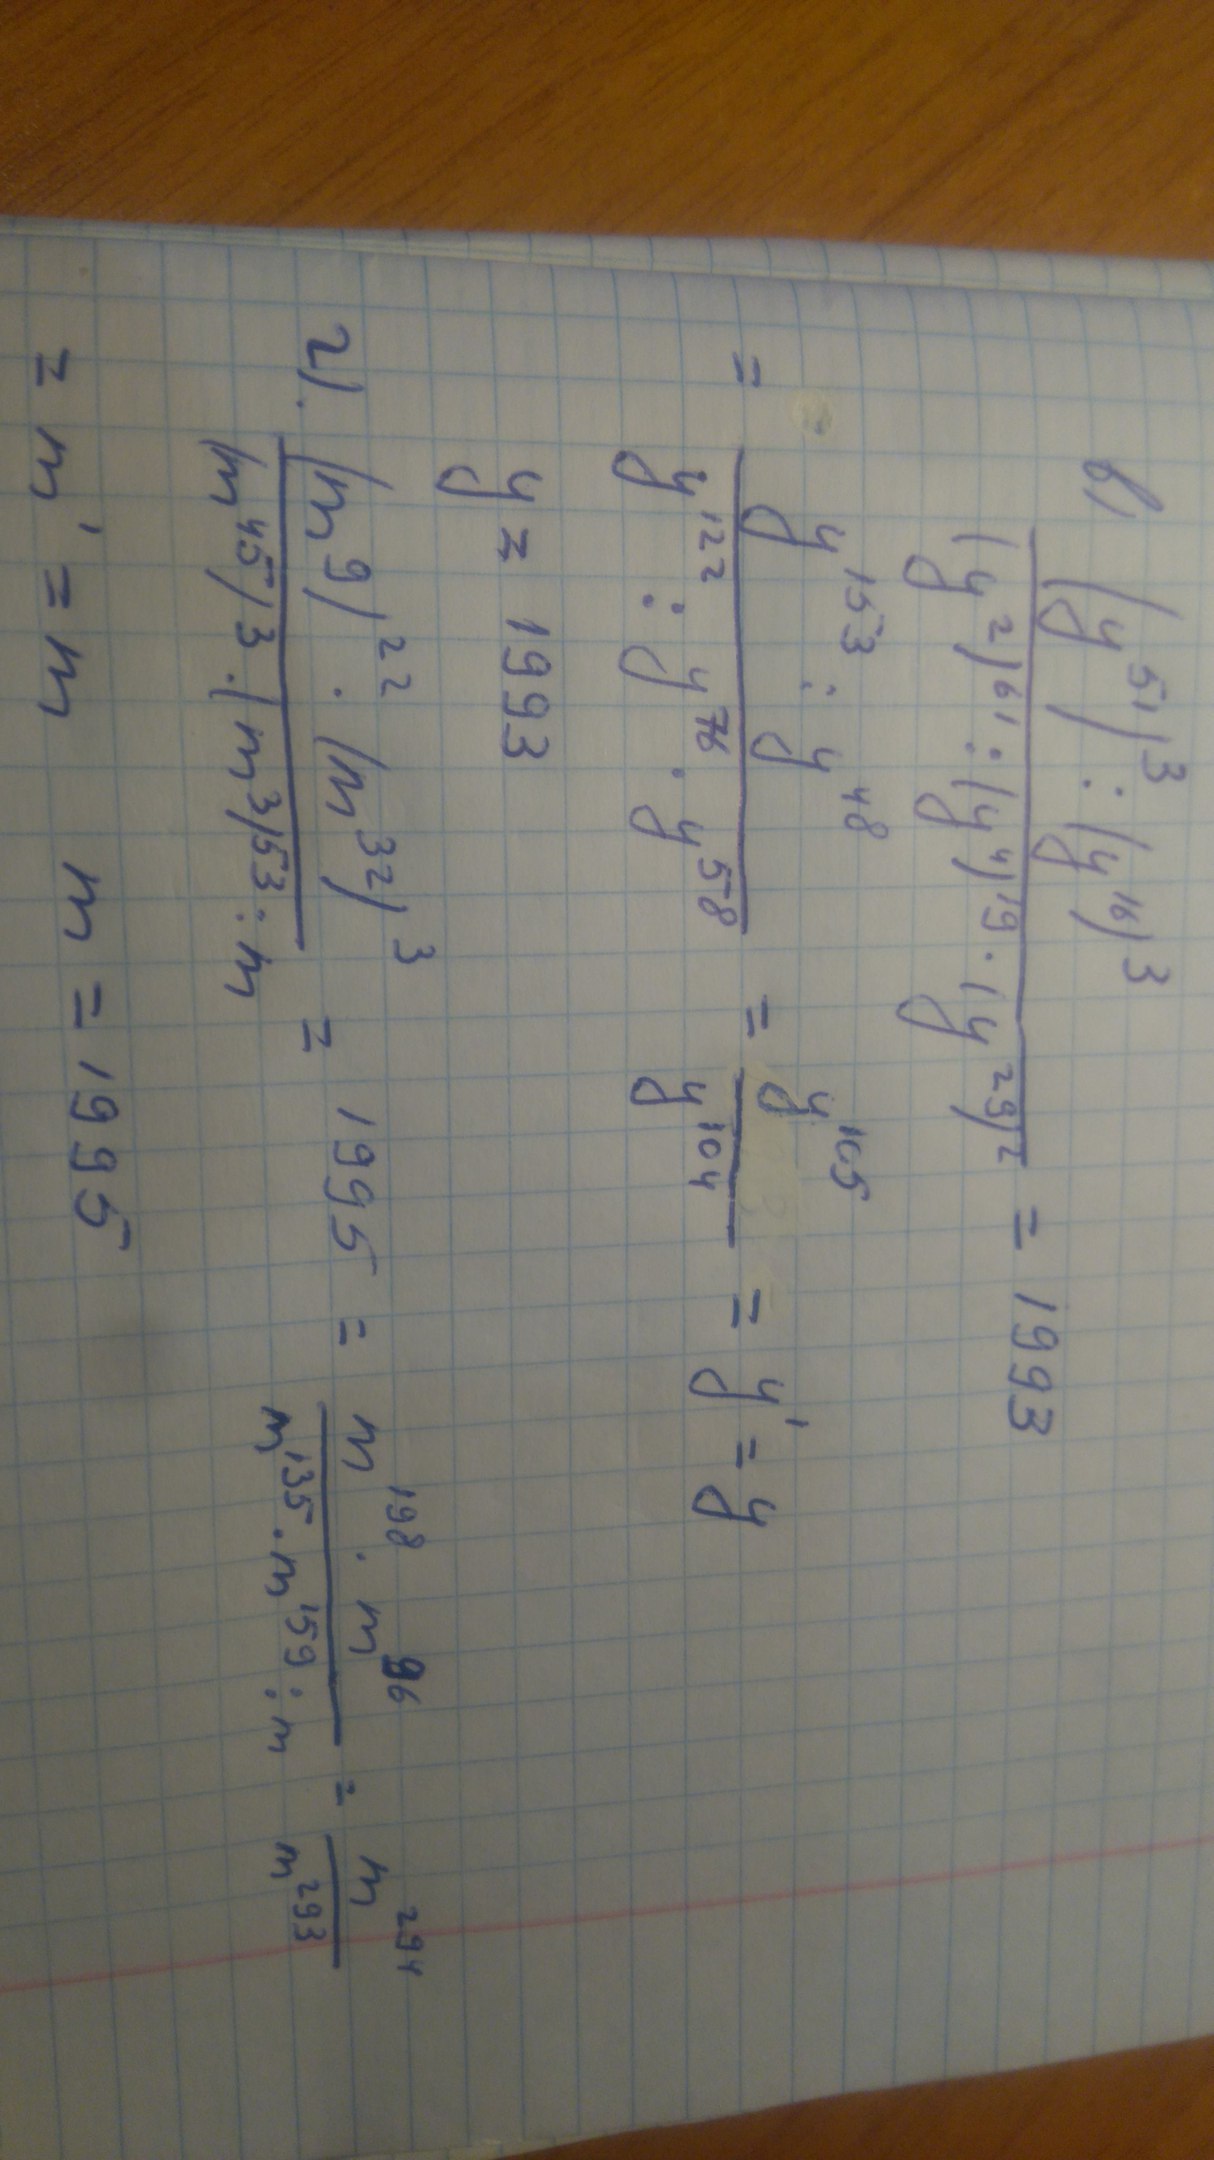 в) (y⁵¹)³ : (y¹⁶)³ / (y²)⁶¹ : (y⁴)¹⁹ · (y²⁹)² = 1993
= y¹⁵³ : y⁴⁸ / y¹²² : y⁷⁶ · y⁵⁸ = y¹⁰⁵ / y¹⁰⁴ = y¹ = y
y = 1993
г). (m⁹)²² · (m³²)³ / (m⁴⁵)³ · (m³)⁵³ : m = 1995 = m¹⁹⁸ · m⁹⁶ / m¹³⁵ · m¹⁵⁹ : m = m²⁹⁴ / m²⁹³
= m¹ = m m = 1995